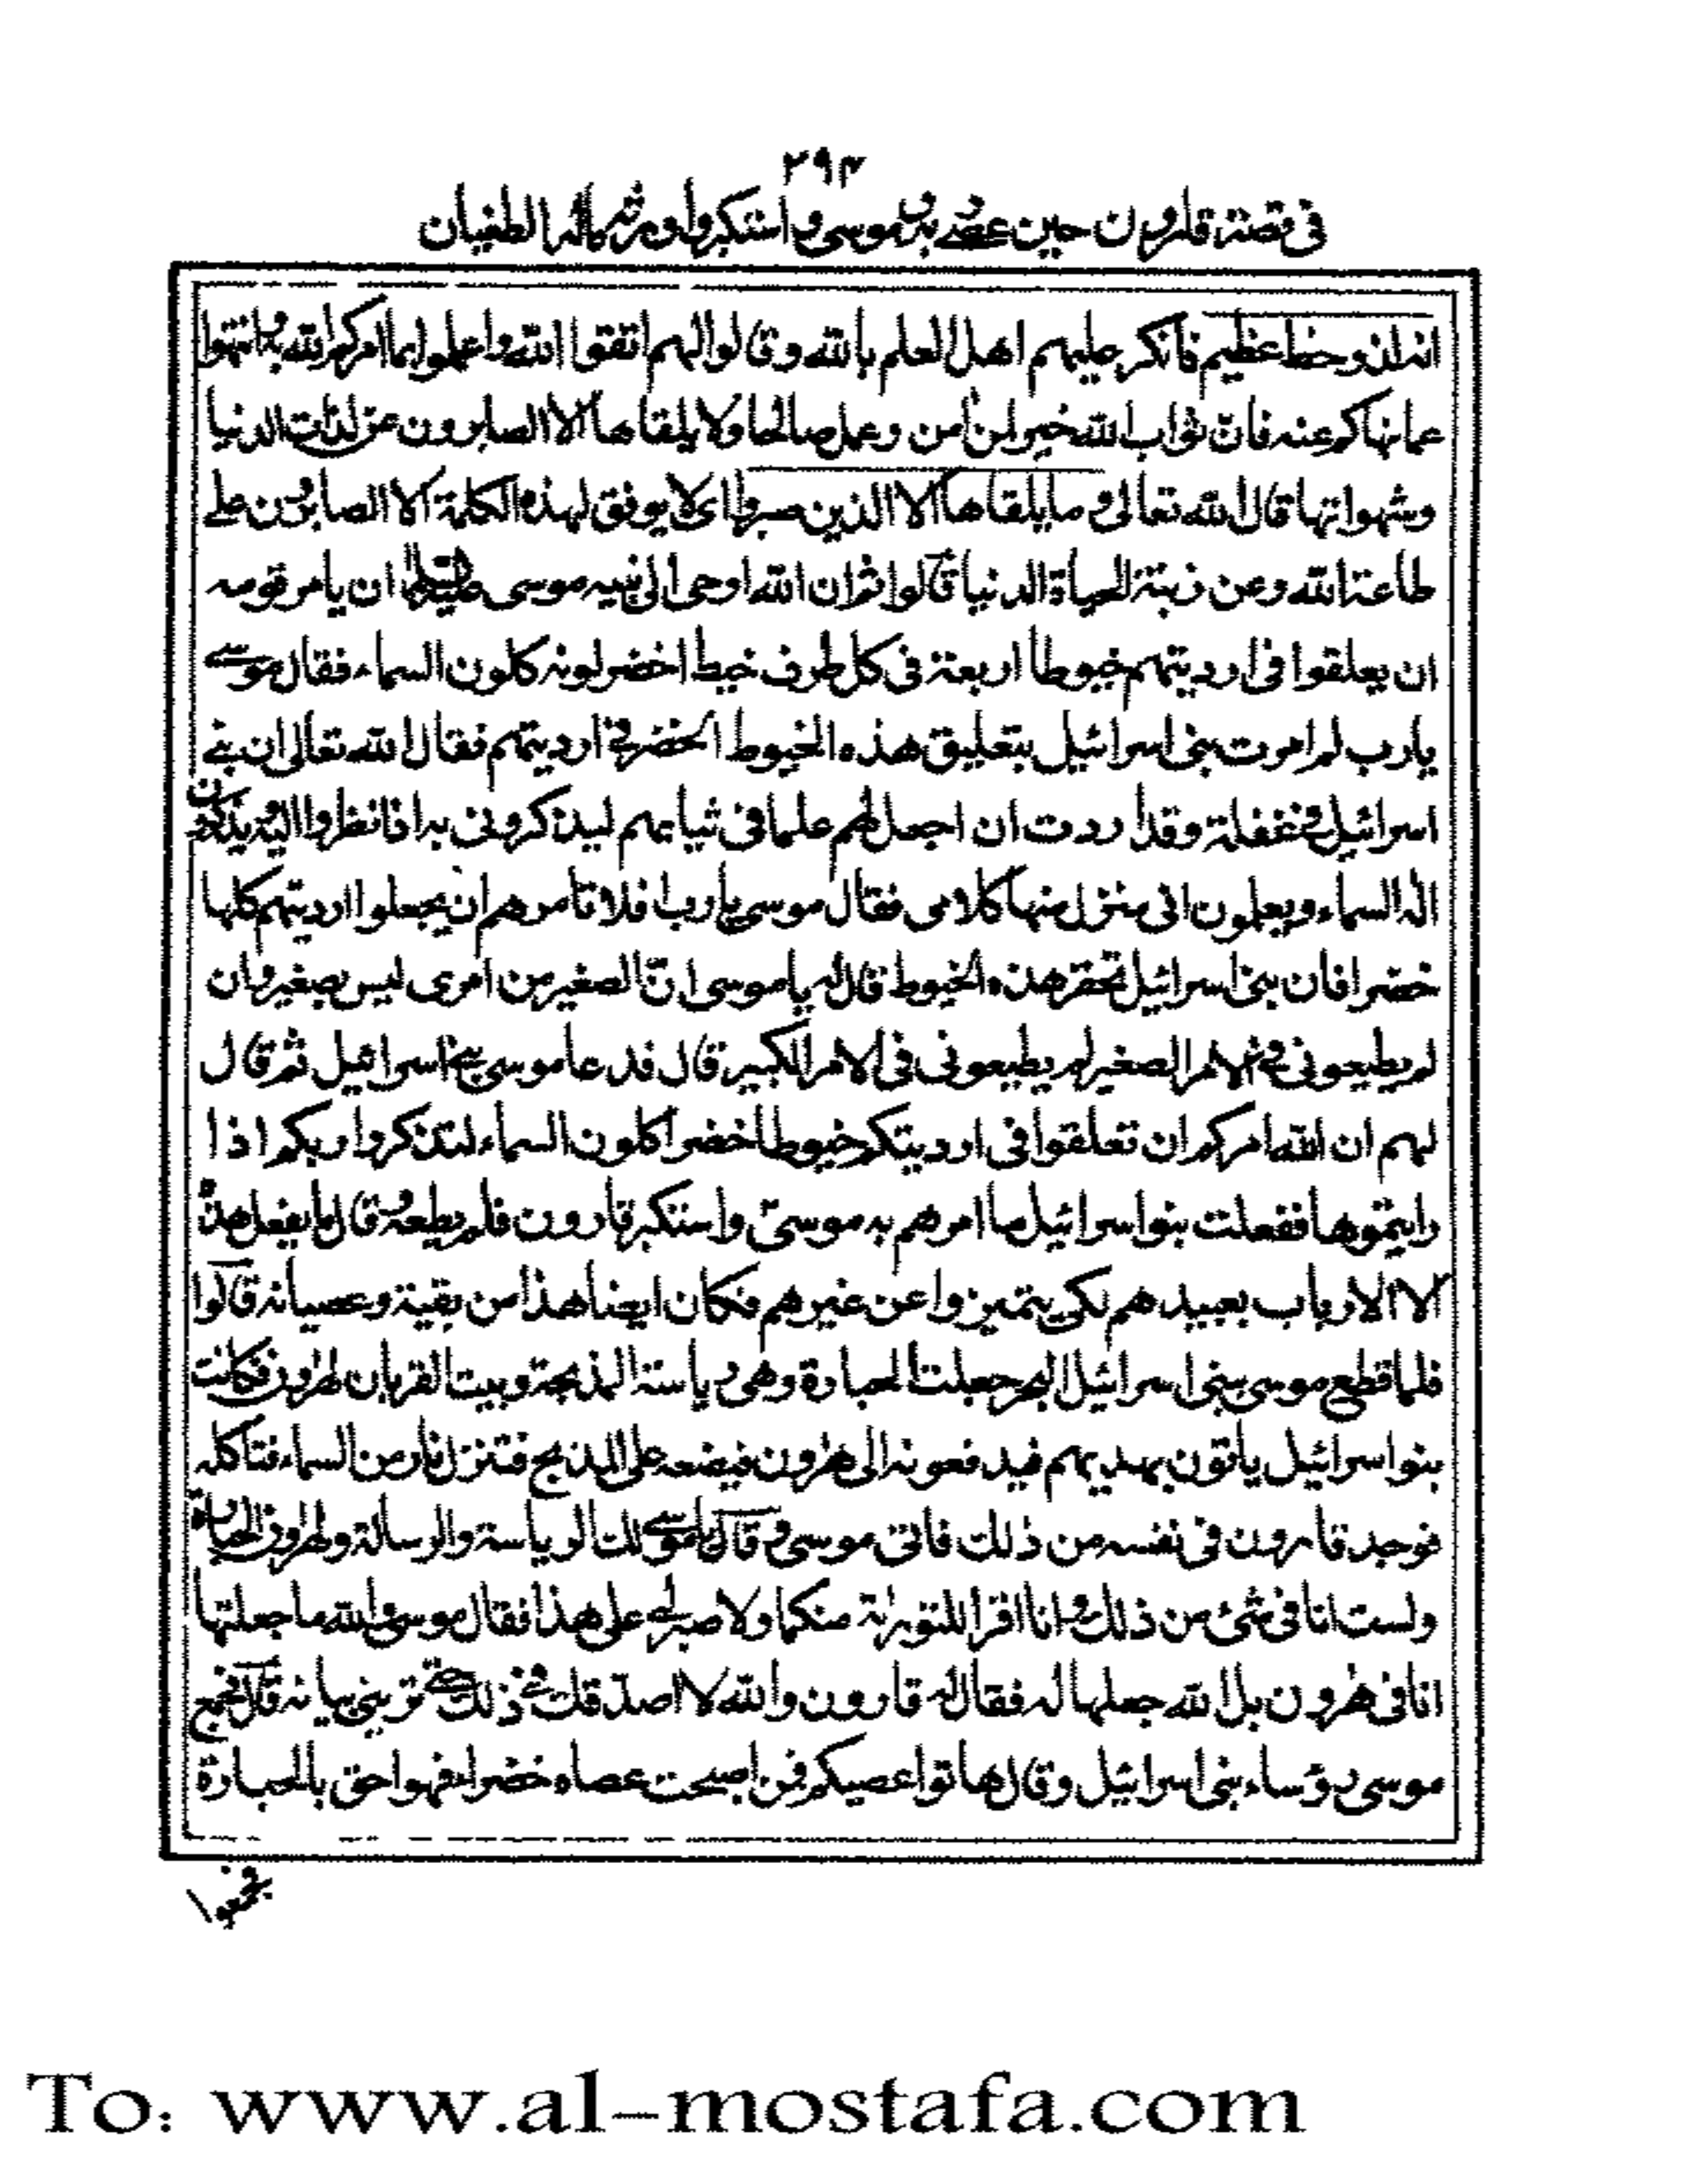 ٢٩٤
في قصة قارون حين عصى ربه وموسى واستكبر واورثه ماله الطغيان
انه لذو حظ عظيم فانكر عليهم اهل العلم بالله وقالوا لهم اتقوا الله واعملوا بما امركم الله به وانتهوا
عما نهاكم عنه فانّ ثواب الله خير لمن آمن وعمل صالحا ولا يلقاها الا الصابرون عن لذات الدنيا
وشهواتها قال الله تعالى وما يلقاها الا الذين صبروا اى لا يوفق لهذه الكلمة الا الصابرون على
طاعة الله وعن زينة الحياة الدنيا قالوا ثم ان الله اوحى الى نبيه موسى عليه السلام ان يامر قومه
ان يعلقوا فى ارديتهم خيوطا اربعة فى كل طرف خيط اخضر لونه كلون السماء فقال موسى
يارب لم امرت بنى اسرائيل بتعليق هذه الخيوط الخضر في ارديتهم فقال الله تعالى ان بنى
اسرائيل في غفلة وقد اردت ان اجعل لهم علما فى ثيابهم ليذكرونى به اذا نظروا اليه ويذكرون
اله السماء ويعلمون انى منزل منها كلامى فقال موسى يارب افلا تامرهم ان يجعلوا ارديتهم كلها
خضرا فان بنى اسرائيل تحقر هذه الخيوط قال له يا موسى انّ الصغير من امرى ليس بصغير وان
لم يطيعونى في الامر الصغير لم يطيعونى فى الامر الكبير قال فدعا موسى بنى اسرائيل ثم قال
لهم ان الله امركم ان تعلقوا فى ارديتكم خيوطا خضرا كلون السماء لتذكروا ربكم اذا
رايتموها ففعلت بنوا اسرائيل ما امرهم به موسى واستكبر قارون فلم يطعه وقال ما يفعل هذا
الا الارباب بعبيدهم لكى يتميزوا عن غيرهم فكان ايضا هذا من بقية وعصيانه قالوا
فلما قطع موسى ببنى اسرائيل البحر جعلت الحبارة وهى رياسة المذبحة وبيت القربان لهارون فكانت
بنوا اسرائيل ياتون بهديهم فيدفعونه الى هرون فيضعه على المذبح فتنزل نار من السماء فتاكله
فوجد قارون فى نفسه من ذلك فاتى موسى وقال يا موسى لك الرياسة والرسالة ولهارون الحبارة
ولست انا فى شئ من ذلك وانا اقرا للتوراة منكما ولا صبر لى على هذا فقال موسى والله ما جعلتها
انا فى هرون بل الله جعلها له فقال له قارون والله لا اصدّقك في ذلك حتى ترينى بيانه قال فجمع
موسى رؤساء بنى اسرائيل وقال هاتوا عصيكم فمن اصبحت عصاه خضراء فهو احق بالحبارة
To: www.al-mostafa.com